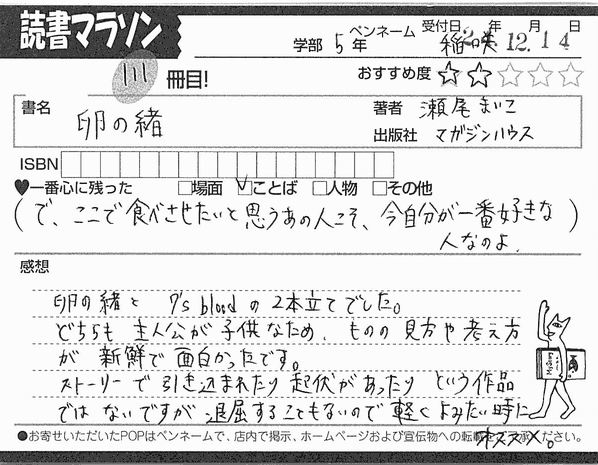 読書マラソン
学部 5年 ペンネーム 稲咲
受付日 年 月 日
24.12.14
111 冊目!
おすすめ度 ★★☆☆☆
書名 卵の緒
著者 瀬尾まいこ
出版社 マガジンハウス
ISBN
♥一番心に残った □場面 ☑ことば □人物 □その他
(で、ここで食べさせたいと思うあの人こそ、今自分が一番好きな
人なのよ。)
感想
卵の緒と 7's bloodの2本立てでした。
どちらも主人公が子供なため、ものの見方や考え方
が新鮮で面白かったです。
ストーリーで引き込まれたり起伏があったりという作品
ではないですが退屈することもないので軽くよみたい時に
オススメ。
●お寄せいただいたPOPはペンネームで、店内で掲示、ホームページおよび宣伝物への転載をご了承ください。